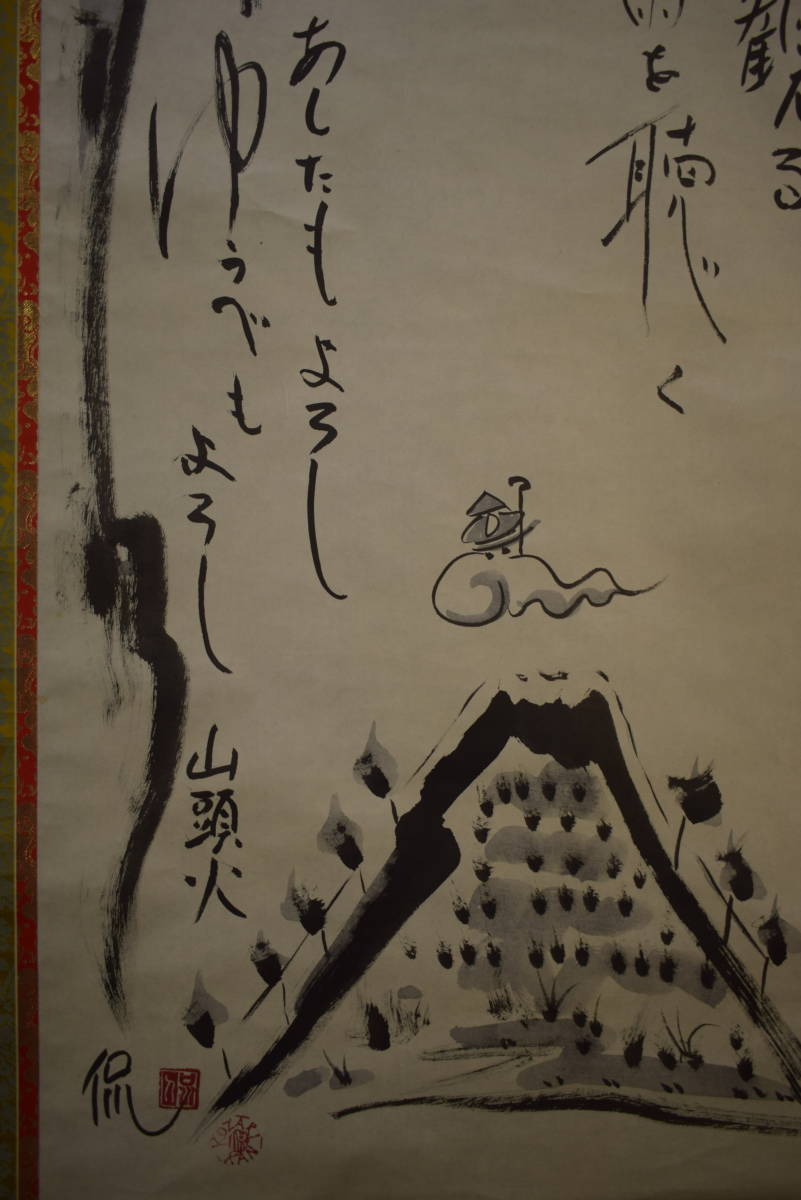 観る
雨を聴く
あしたもよろし
ゆうべもよろし
山頭火
侃